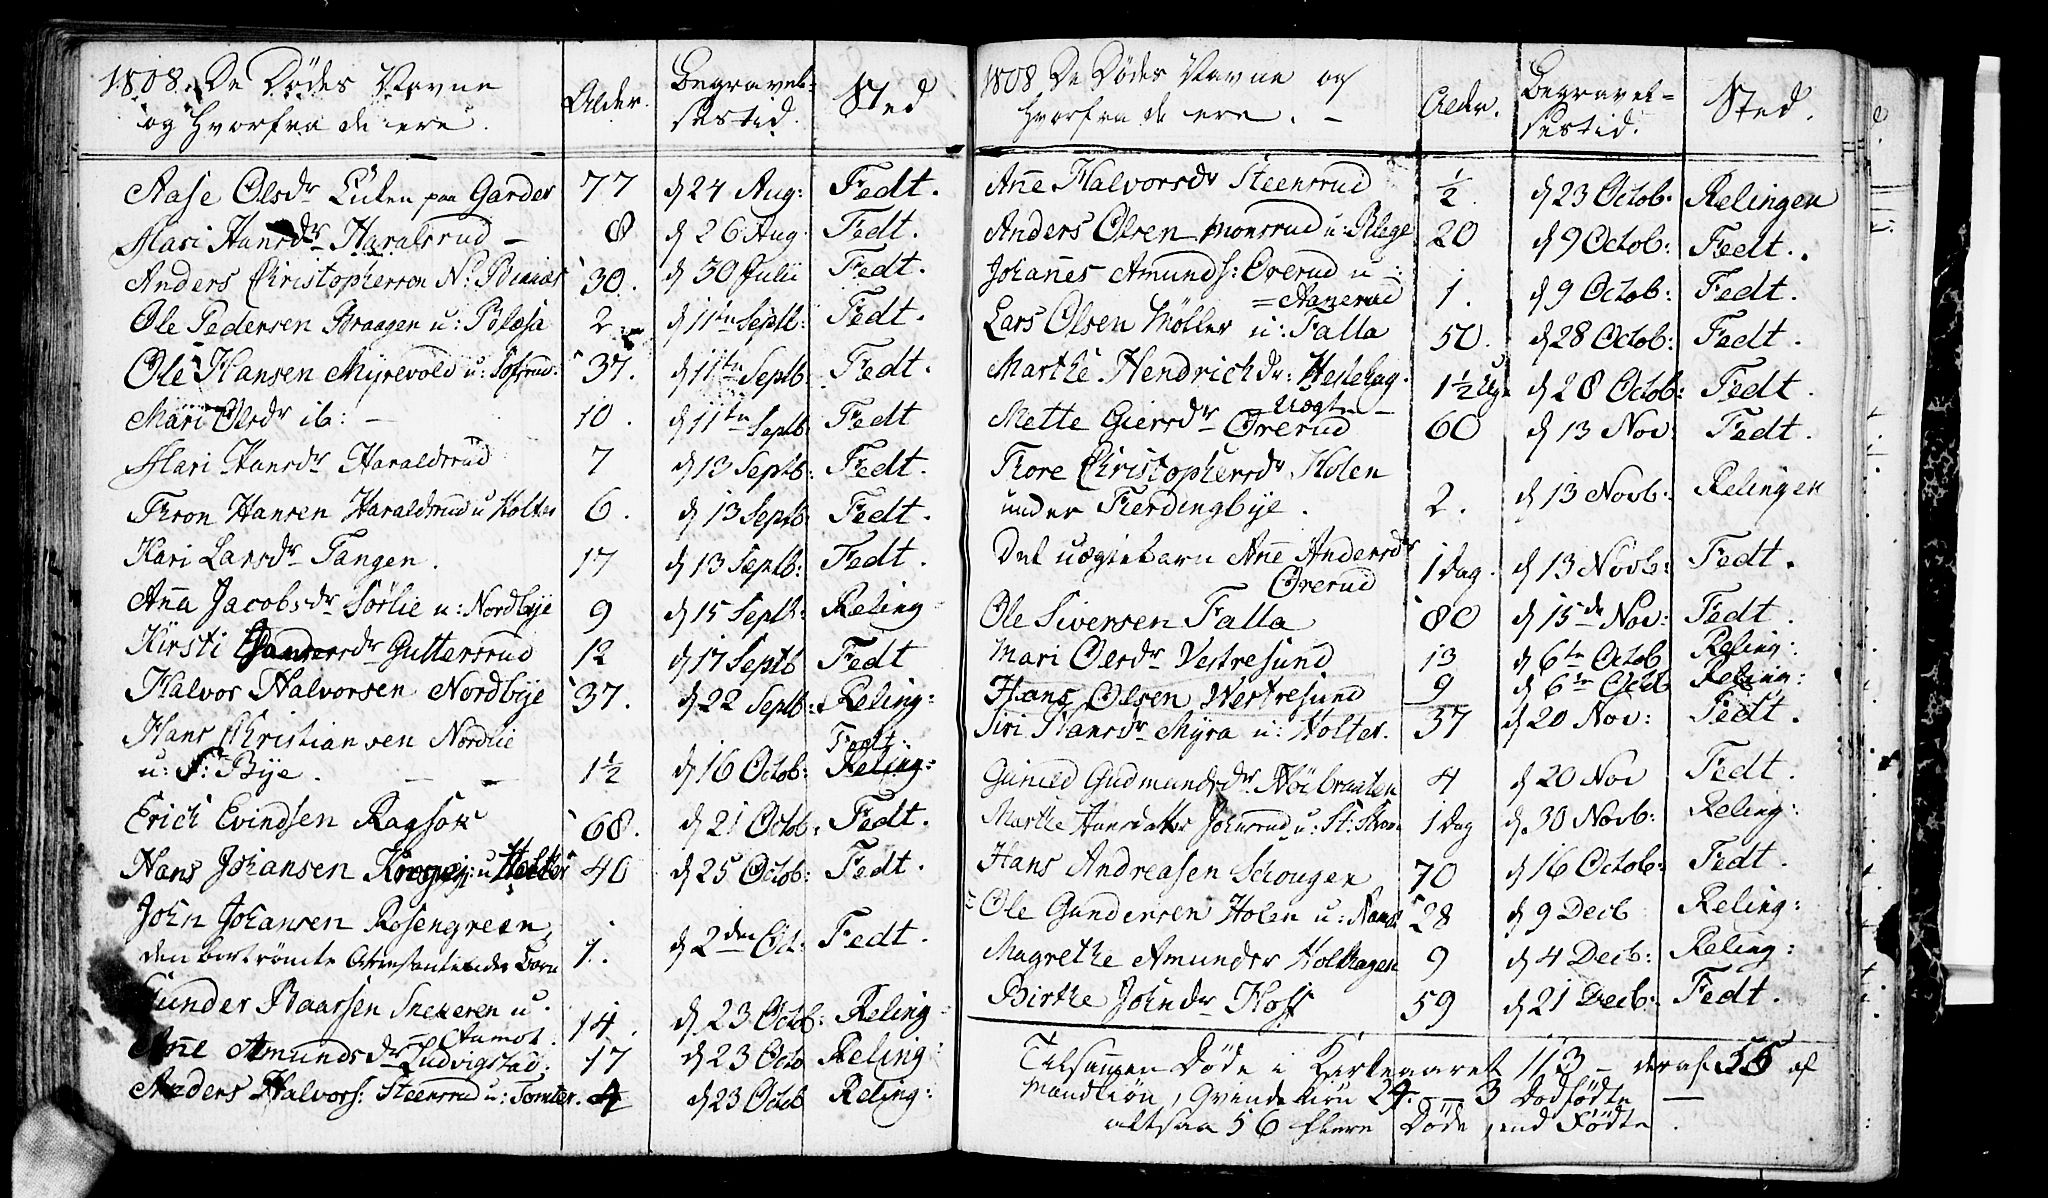 1808. De Dödes Navne
og Hvorfra de ere.
Alder.
Begravel-
sestid.
Sted
Aase Olsdr Lúken paa Garder 77 d 24 Aug: Fedt.
Mari Hansdr Haralsrud - 8 d 26 Aug Fedt.
Anders Christophersen N: 30. d 30 Julii Fedt.
Ole Pedersen Braagen u: 2 d 11te Septb: Fedt.
Ole Hansen Myrevold u: 37. d 11te Septb Fedt.
Mari Olsdr ib: - 10. d 11te Septb Fedt
Mari Hansdr Haraldsrud 7 d 13 Septb: Fedt.
Thron Hansen Haraldsrud u Holter 6. d 13 Septb: Fedt.
Kari Larsdr Tangen. 17 d 13 Septb: Fedt.
Anna Jacobsdr Sörlie u: Nordbye 9 d 15 Septb: Reling
Kirsti Guttersrud 12 d 17 Septb Fedt
Halvor Halvorsen Nordbye 37. d 22 Septb: Reling:
Hans Christiansen Nordlie
u: S: Bye. - - 1½ d 16 Octob: Fedt: Reling:
Erich Evindsen Ragsok 68. d 21 Octob: Fedt.
Hans Johansen u Holter 40 d 25 Octob: Fedt.
John Johansen Rosengreen,
den bortrömte Barn 1. d 2den Oct: Fedt.
Gunder Baarsen Snekeren u.
Aamot. 14. d 23 Octob: Reling
Anne Amundsdr Ludvigstad. 17 d 23 Octo Reling:
Anders Halvors: Steensrud u: Tomter. 4 d 23 Octob Reling:
1808 De Dödes Navne og
Hvorfra de ere. -
Alder.
Begravel-
sestid.
Sted.
Anne Halvorsdr Steensrud ½. d 23 Octob: Relingen
Anders Olsen Monsrud u: 20 d 9 Octob: Fedt.
Johannes Amunds: Ovrerud u -:
1. d 9 Octob: Fedt.
Lars Olsen Möller u: Falla 50. d 28 Octob: Fedt.
Marthe Hendrichdr: Hestehag. 1½ Uge d 28 Octob: Fedt.
Mette Giersdr Ovrerud 60 d 13 Nov: Fedt.
Thore Christophersdr Holen
under Fierdingbye. 2. d 13 Novb: Relingen
Det uægtebarn Anne Andersdr
Ovrerud 1 dag. d 13 Novb: Fedt.
Ole Siversen Falla 80 d 15de Nov: Fedt.
Mari Olsdr Vestresund 13 d 6te Octob Reling:
Hans Olsen Westresund 9 d 6te Octob Reling:
Siri Hansdr Myra u: Holter. 37 d 20 Nov: Fedt.
Gunild Gudmundsdr Höibraaten 4 d 20 Nov Fedt.
Marthe Hansdatter Johnsrud u: St: 1 dag d. 30 Novb: Reling:
Hans Andreasen Schougen 70 d 16 Octob: Fedt.
Ole Gundersen Holen u: 28 d 9 Decb Reling:
Magrethe Amundsdr Holthagen 9 d 4 Decb: Reling:
Birthe Johndr Hoff 59 d 21 Decb: Fedt.
Tilsammen Döde i Kirkeaaret 113 - deraf 55 af
Mandkiön, Qvindekiön 24. - 3 Dödfödte -
altsaa 56 flere Döde end Födte.